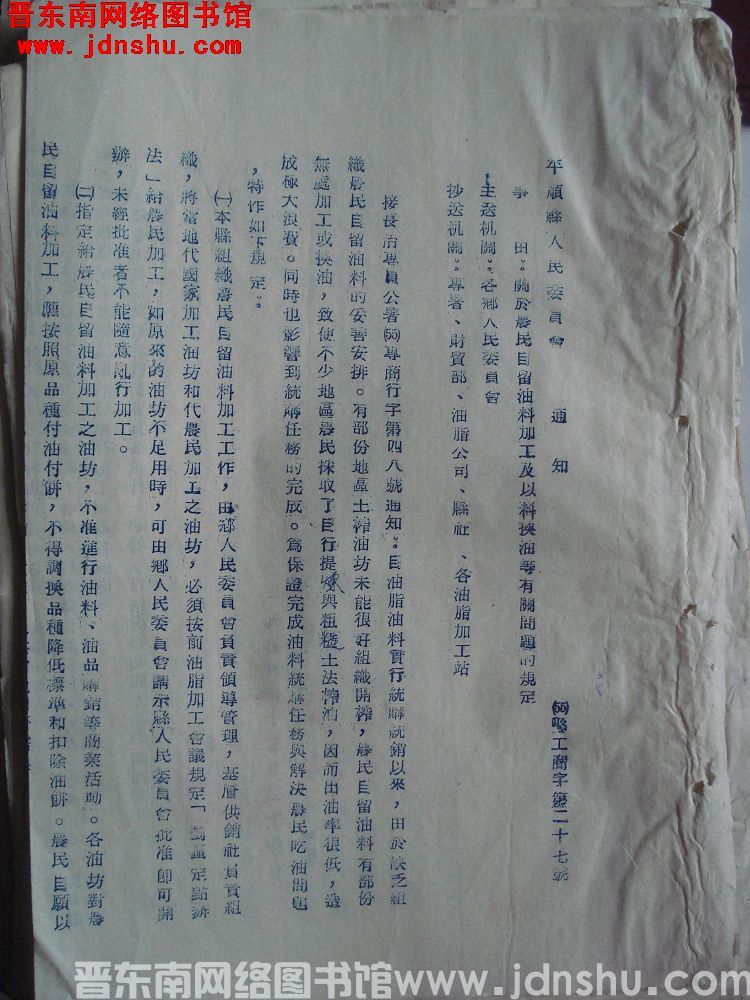 晋东南网络图书馆
www.jdnshu.com
平順縣人民委員會　通　知
(55)工商字第二十七號
事　田：關於農民自留油料加工及以料换油等有關問題的規定
主送机關：各鄉人民委員會
抄送机關：專署、財貿部、油脂公司、縣社、各油脂加工站
接長治專員公署(55)專商行字第四八號通知：自油脂油料實行統購統銷以來，田於缺乏組
織農民自留油料的妥善安排。有部份地區土榨油坊未能很好組織開榨，農民自留油料有部份
無處加工或换油，致使不少地區農民採取了自行提與粗糙土法榨油，因而出油率很低，造
成極大浪費。同時也影響到統購任務的完成。爲保證完成油料統購任務與解决農民吃油問題
，特作如下規定：
㈠本縣組織農民自留油料加工工作，由鄉人民委員會負責領導管理，基層供銷社負責組
織，將當地代國家加工油坊和代農民加工之油坊，必須按前油脂加工會議規定「定點辦
法」給農民加工，如原來的油坊不足用時，可由鄉人民委員會請示縣人民委員會批准即可開
辦，未經批准者不能隨意亂行加工。
㈡指定給農民自留油料加工之油坊，不准進行油料、油品購銷等商業活動。各油坊對農
民自留油料加工，應按照原品種付油付餅，不得調换品種降低標準和扣除油餅。農民自願以
晋东南网络图书馆www.jdnshu.com